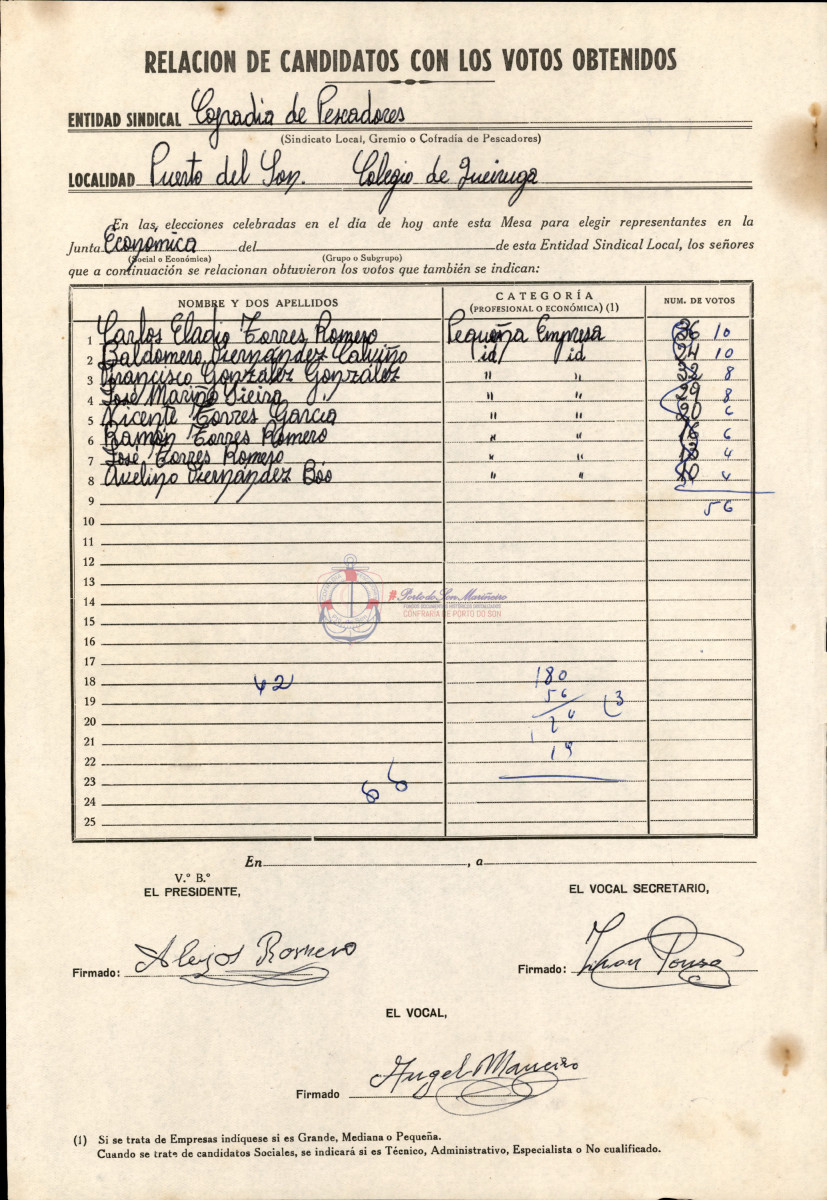 RELACION DE CANDIDATOS CON LOS VOTOS OBTENIDOS
ENTIDAD SINDICAL Cofradia de Pescadores
(Sindicato Local, Gremio o Cofradía de Pescadores)
LOCALIDAD Puerto del Son. Colegio de Queiruga
En las elecciones celebradas en el día de hoy ante esta Mesa para elegir representantes en la
Junta Económica del de esta Entidad Sindical Local, los señores
(Social o Económica) (Grupo o Subgrupo)
que a continuación se relacionan obtuvieron los votos que también se indican:
NOMBRE Y DOS APELLIDOS CATEGORÍA (PROFESIONAL O ECONÓMICA) (1) NUM. DE VOTOS
1 Carlos Eladio Torres Romero Pequeña Empresa 36 10
2 Baldomero Hernández Calviño id id 24 10
3 Francisco González González " " 22 8
4 José Mariño Sieira " " 29 8
5 Vicente Torres García " " 20 6
6 Ramón Torres Romero " " 6
7 José Torres Romero " " 4
8 Avelino Hernández Boo " " 4
9 56
10
11
12
13
14 #Porto do Son Mariñeiro
CONFRARÍA DE PORTO DO SON
15
16
17
18 42 180
19 56 3
20
21
22
23
24
25
En , a
V.º B.º
EL PRESIDENTE, EL VOCAL SECRETARIO,
Firmado: Alejos Romero Firmado:
EL VOCAL,
Firmado Angel Maneiro
(1) Si se trata de Empresas indíquese si es Grande, Mediana o Pequeña.
Cuando se trate de candidatos Sociales, se indicará si es Técnico, Administrativo, Especialista o No cualificado.